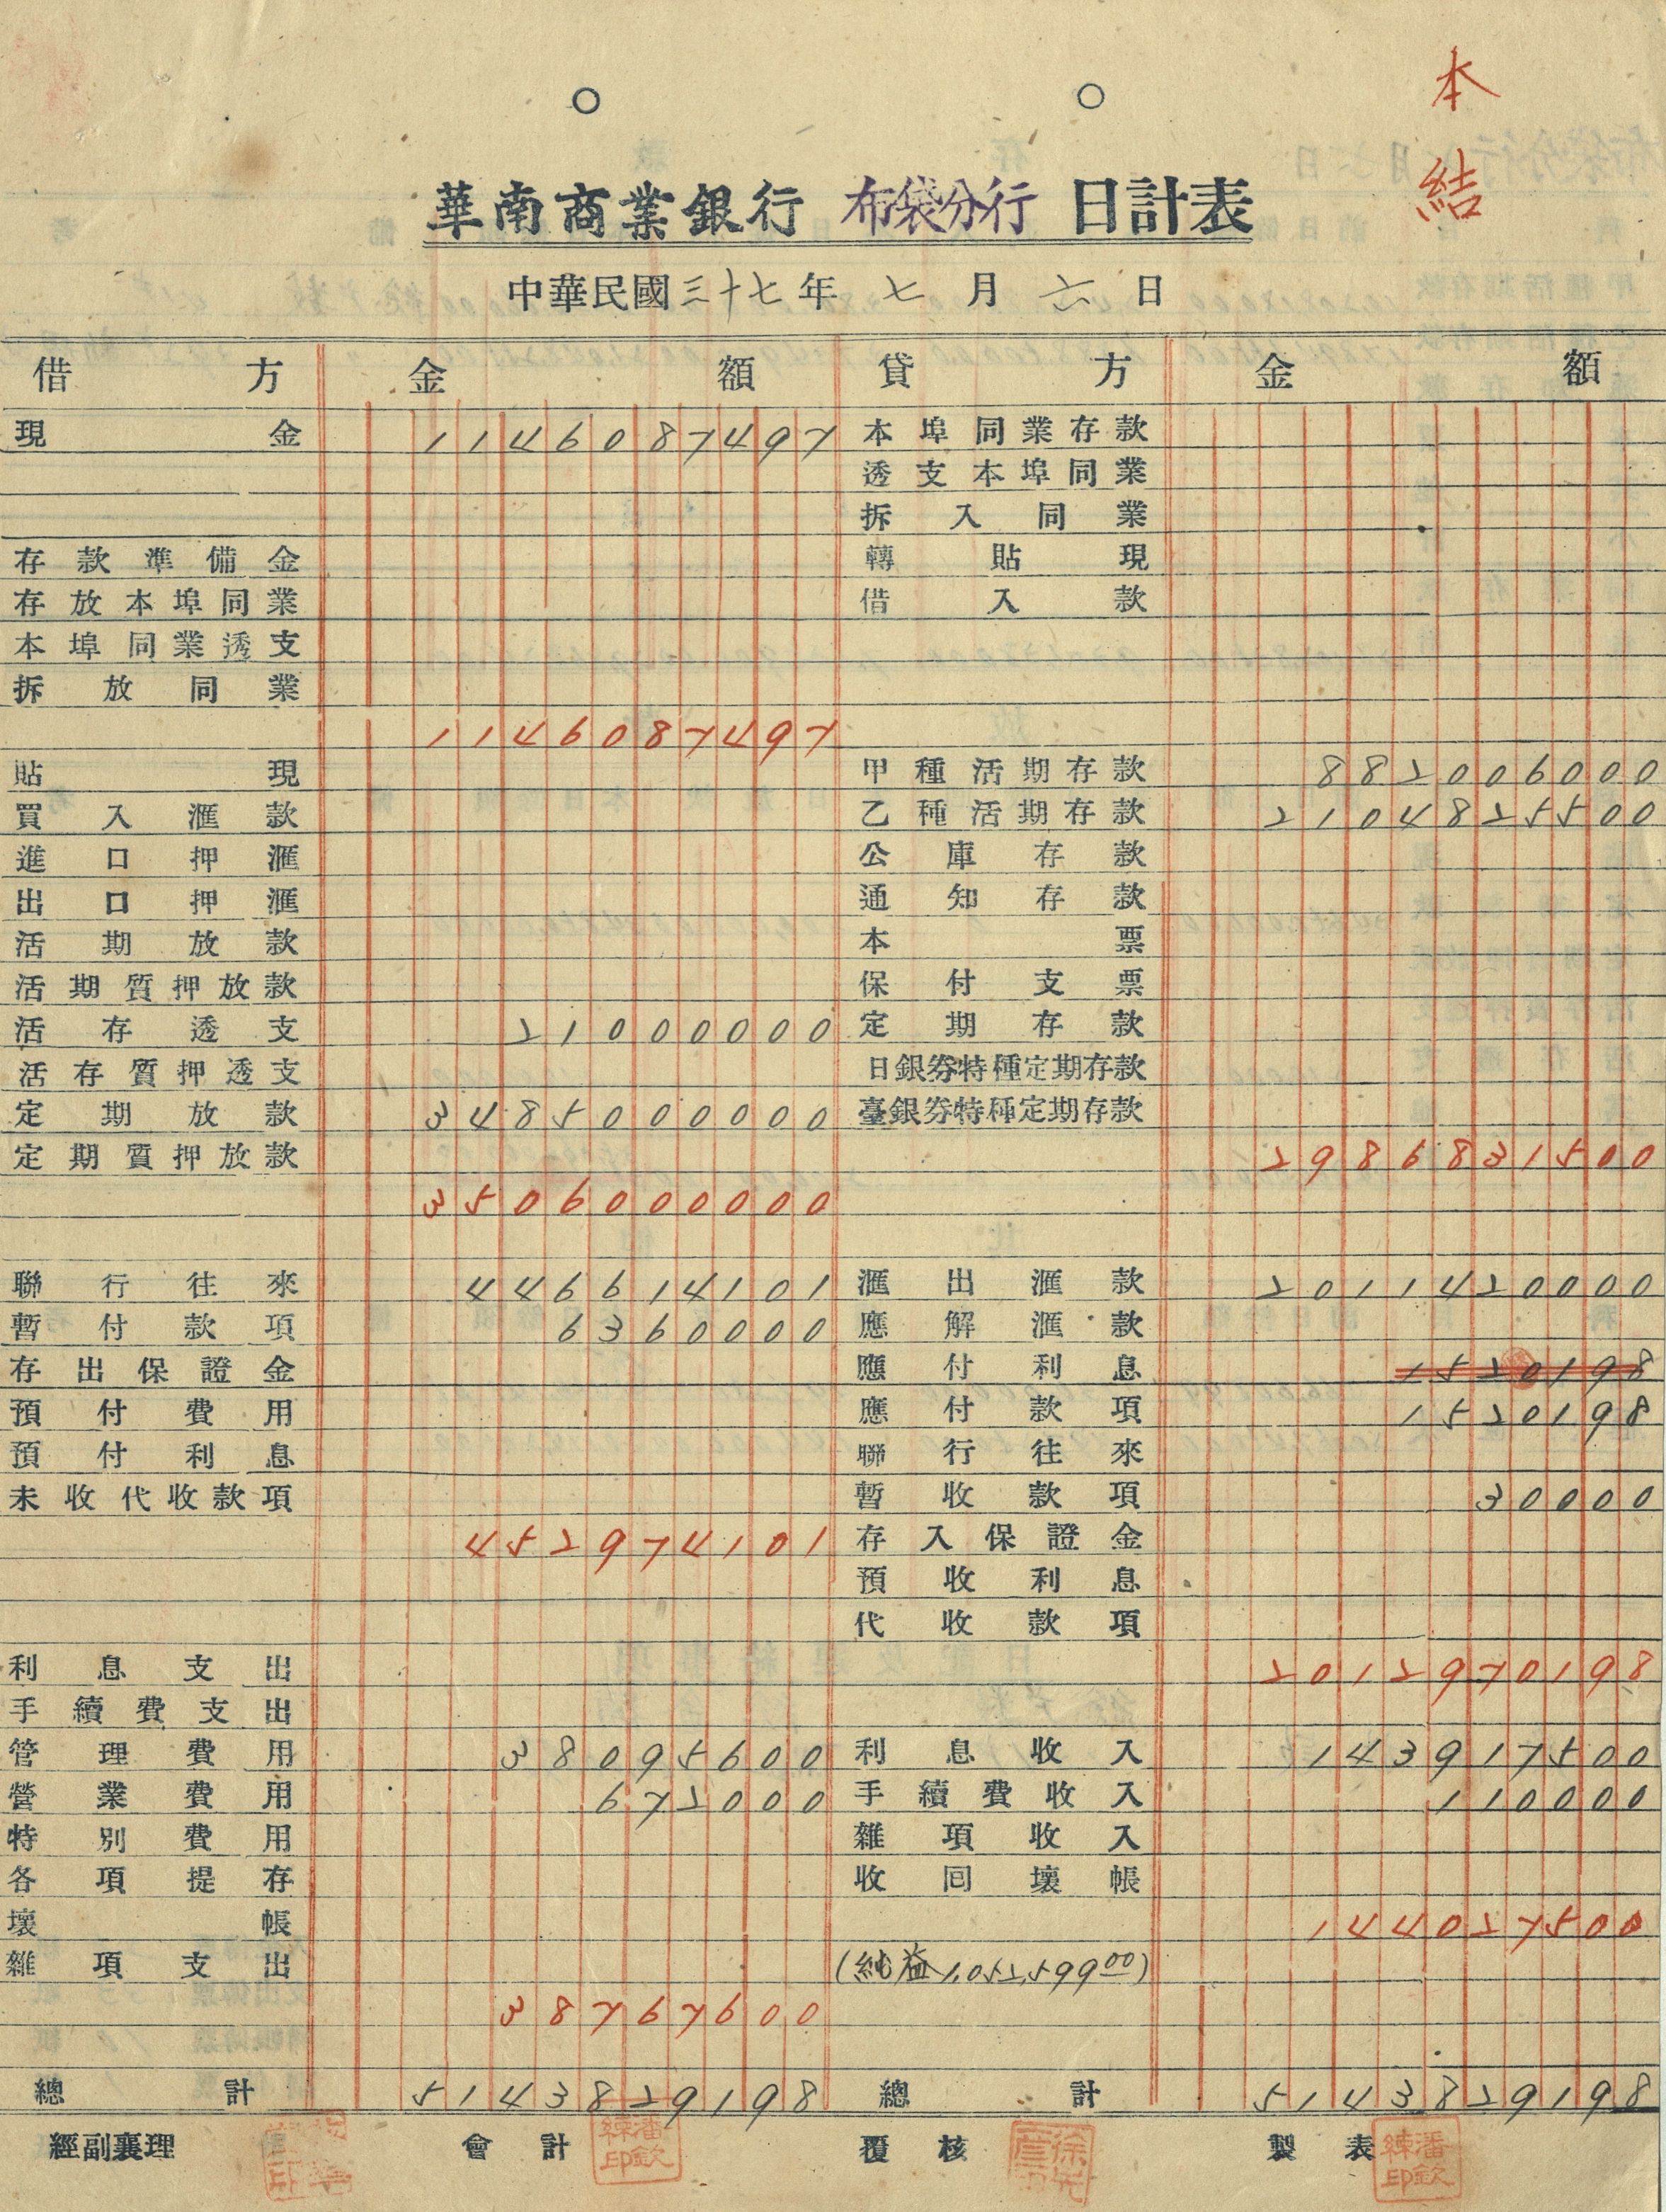 本結
華南商業銀行 布袋分行 日計表
中華民國三十七年 七月 六日
借方 金額 貸方 金額
現金 1146087497 本埠同業存款
透支本埠同業
拆入同業
存款準備金 轉貼現
存放本埠同業 借入款
本埠同業透支
拆放同業
1146087497
貼現 甲種活期存款 882006000
買入滙款 乙種活期存款 2104825500
進口押滙 公庫存款
出口押滙 通知存款
活期放款 本票
活期質押放款 保付支票
活存透支 21000000 定期存款
活存質押透支 日銀券特種定期存款
定期放款 3485000000 臺銀券特種定期存款
定期質押放款 2986831500
3506000000
聯行往來 446614101 滙出滙款 2011420000
暫付款項 6360000 應解滙款
存出保證金 應付利息 1520198
預付費用 應付款項 1520198
預付利息 聯行往來
未收代收款項 暫收款項 30000
452974101 存入保證金
預收利息
代收款項
利息支出 2012970198
手續費支出
管理費用 38095600 利息收入 143917500
營業費用 672000 手續費收入 110000
特別費用 雜項收入
各項提存 收回壞帳
壞帳 144027500
雜項支出 (純益1,052,599.00)
38767600
總計 5143829198 總計 5143829198
經副襄理 會計 潘欽練印 覆核 製表 潘欽練印